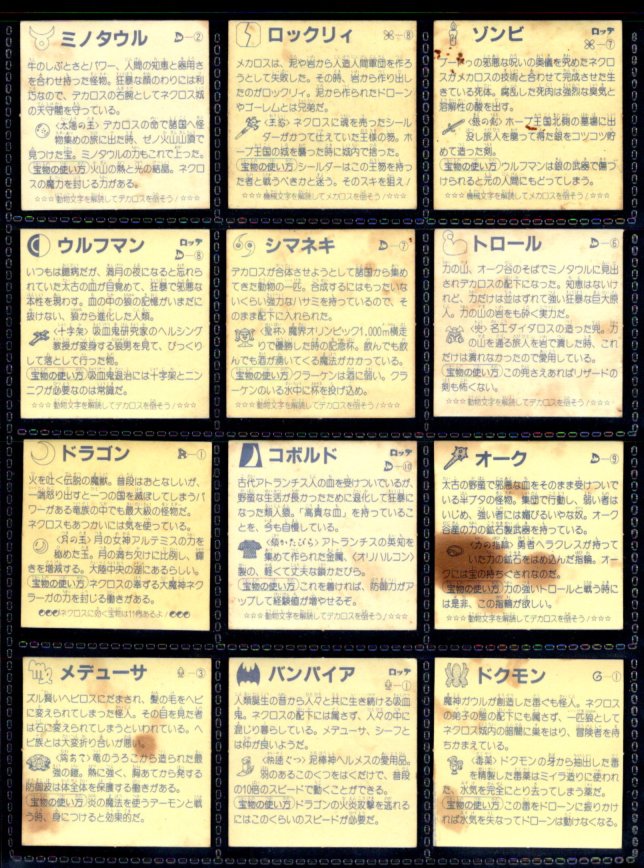 ミノタウル D-②
牛のしぶとさとパワー、人間の知恵と器用さ
を合わせ持った怪物。狂暴な顔のわりには利
巧なので、デカロスの右腕としてネクロス城
の天守閣を守っている。
〈太陽の玉〉デカロスの命で諸国へ怪
物集めの旅に出た時、ゼノ火山山頂で
見つけた宝。ミノタウルの力もこれで上った。
宝物の使い方 火山の熱と光の結晶。ネクロ
スの魔力を封じる力がある。
☆☆☆動物文字を解読してデカロスを倒そう!☆☆☆
ロックリィ -⑧
メカロスは、泥や岩から人造人間軍団を作ろ
うとして失敗した。その時、岩から作り出し
たのがロックリィ。泥から作られたドローン
やゴーレムとは兄弟だ。
〈王笏〉ネクロスに魂を売ったシール
ダーがかつて仕えていた王様の笏。ホ
ープ王国の城を襲った時に城内で拾った。
宝物の使い方 シールダーはこの王笏を持っ
た者と戦うべきかと迷う。そのスキを狙え!
☆☆☆機械文字を解読してメカロスを倒そう!☆☆☆
ゾンビ ロッテ
-⑦
ブードゥの邪悪な呪いの奥義を究めたネクロ
スがメカロスの技術と合わせて完成させた生
きている死体。腐乱した死肉は強烈な臭気と
溶解性の酸を出す。
〈銀の剣〉ホープ王国北朝の墓場に出
没し旅人を襲って得た銀をコツコツ貯
めて造った剣。
宝物の使い方 ウルフマンは銀の武器で傷つ
けられると元の人間にもどってしまう。
☆☆☆機械文字を解読してメカロスを倒そう!☆☆☆
ウルフマン ロッテ
D-⑧
いつもは臆病だが、満月の夜になると忘れら
れていた太古の血が目覚めて、狂暴で邪悪な
本性を現わす。血の中の狼の記憶がいまだに
抜けない、狼から進化した人類。
〈十字架〉吸血鬼研究家のヘルシング
教授が変身する狼男を見て、びっくり
して落として行った物。
宝物の使い方 吸血鬼退治には十字架とニン
ニクが必要なのは常識だ。
☆☆☆動物文字を解読してデカロスを倒そう!☆☆☆
シマネキ D-⑦
デカロスが合体させようとして諸国から集め
てきた動物の一匹。合成するにはもったいな
いくらい強力なハサミを持っているので、そ
のまま配下に入れられた。
〈聖杯〉魔界オリンピック1,000m横走
りで優勝した時の記念杯。飲んでも飲
んでも酒が湧いてくる魔法がかかっている。
宝物の使い方 クラーケンは酒に弱い。クラ
ーケンのいる水中に杯を投げ込め。
☆☆☆動物文字を解読してデカロスを倒そう!☆☆☆
トロール D-⑥
力の山、オーク谷のそばでミノタウルに見出
されデカロスの配下になった。知恵はないけ
れど、力だけは並はずれて強い狂暴な巨大原
人。力の山の岩をも砕く実力だ。
〈兜〉名工ダイダロスの造った兜。力
の山を通る旅人を岩で潰した時、これ
だけは潰れなかったので愛用している。
宝物の使い方 この兜さえあればリザードの
剣も怖くない。
☆☆☆動物文字を解読してデカロスを倒そう!☆☆☆
ドラゴン R-①
火を吐く伝説の魔獣。普段はおとなしいが、
一端怒り出すと一つの国を滅ぼしてしまうパ
ワーがある竜族の中でも最大級の怪物だ。
ネクロスもあつかいには気を使っている。
〈月の玉〉月の女神アルテミスの力を
秘めた玉。月の満ち欠けに比例し、輝
きを増減する。大陸中央の湖にあるらしい。
宝物の使い方 ネクロスの奉ずる大魔神ネク
ラーガの力を封じる働きがある。
ネクロスに効く宝物は11個あるよ!
コボルド ロッテ
D-⑩
古代アトランチス人の血を受けついでいるが、
野蛮な生活が長かったために退化して狂暴に
なった類人猿。「高貴な血」を持っていること
を、今も自慢している。
〈鎖かたびら〉アトランチスの英知を
集めて作られた金属、〈オリハルコン〉
製の、軽くて丈夫な鎖かたびら。
宝物の使い方 これを着ければ、防御力がア
ップして経験値が増やせるぞ。
☆☆☆動物文字を解読してデカロスを倒そう!☆☆☆
オーク D-⑨
太古の野蛮で邪悪な血をそのまま受けついで
いる半ブタの怪物。集団で行動し、弱い者は
いじめ、強い者には媚びるいやな奴。オーク
谷産の力の鉱石製武器を持っている。
〈力の指輪〉勇者ヘラクレスが持って
いた力の鉱石をはめ込んだ指輪。オー
クには宝の持ちぐされなのだ。
宝物の使い方 力の強いトロールと戦う時に
は是非、この指輪が欲しい。
☆☆☆動物文字を解読してデカロスを倒そう!☆☆☆
メデューサ -③
ズル賢いヘビロスにだまされ、髪の毛をヘビ
に変えられてしまった怪人。その目を見た者
は石に変えられてしまうといわれている。ヘ
ビ族とは大変折り合いが悪い。
〈胸あて〉竜のうろこから造られた最
強の鎧。熱に強く、胸あてから発する
防御波は体全体を保護する働きがある。
宝物の使い方 炎の魔法を使うデーモンと戦
う時、身につけると効果的だ。
バンパイア ロッテ
-①
人類誕生の昔から人々と共に生き続ける吸血
鬼。ネクロスの配下には属さず、人々の中に
混じり暮らしている。メデューサ、シーフと
は仲が良いようだ。
〈快速ぐつ〉泥棒神ヘルメスの愛用品。
羽のあるこのくつをはくだけで、普段
の10倍のスピードで動くことができる。
宝物の使い方 ドラゴンの火炎攻撃を逃れる
にはこのくらいのスピードが必要だ。
ドクモン G-①
魔神ガウルが創造した毒ぐも怪人。ネクロス
の弟子の誰の配下にも属さず、一匹狼として
ネクロス城内の暗闇に巣をはり、冒険者を待
ちかまえている。
〈毒薬〉ドクモンの身から抽出した毒
を精製した毒薬はミイラ造りに使われ
た、水気を完全にとり去ってしまう薬だ。
宝物の使い方 この毒をドローンに振りかけ
れば水気を失なってドローンは動けなくなる。